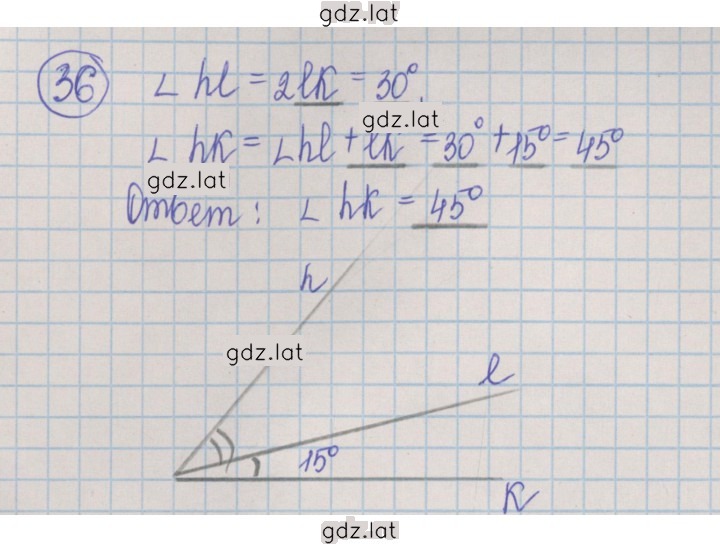 gdz.lat
36 ∠ hl = 2lk = 30°.
gdz.lat
∠ hk = ∠hl + lk = 30° + 15° = 45°
gdz.lat
Ответ: ∠ hk = 45°
h
gdz.lat
l
15°
k
gdz.lat